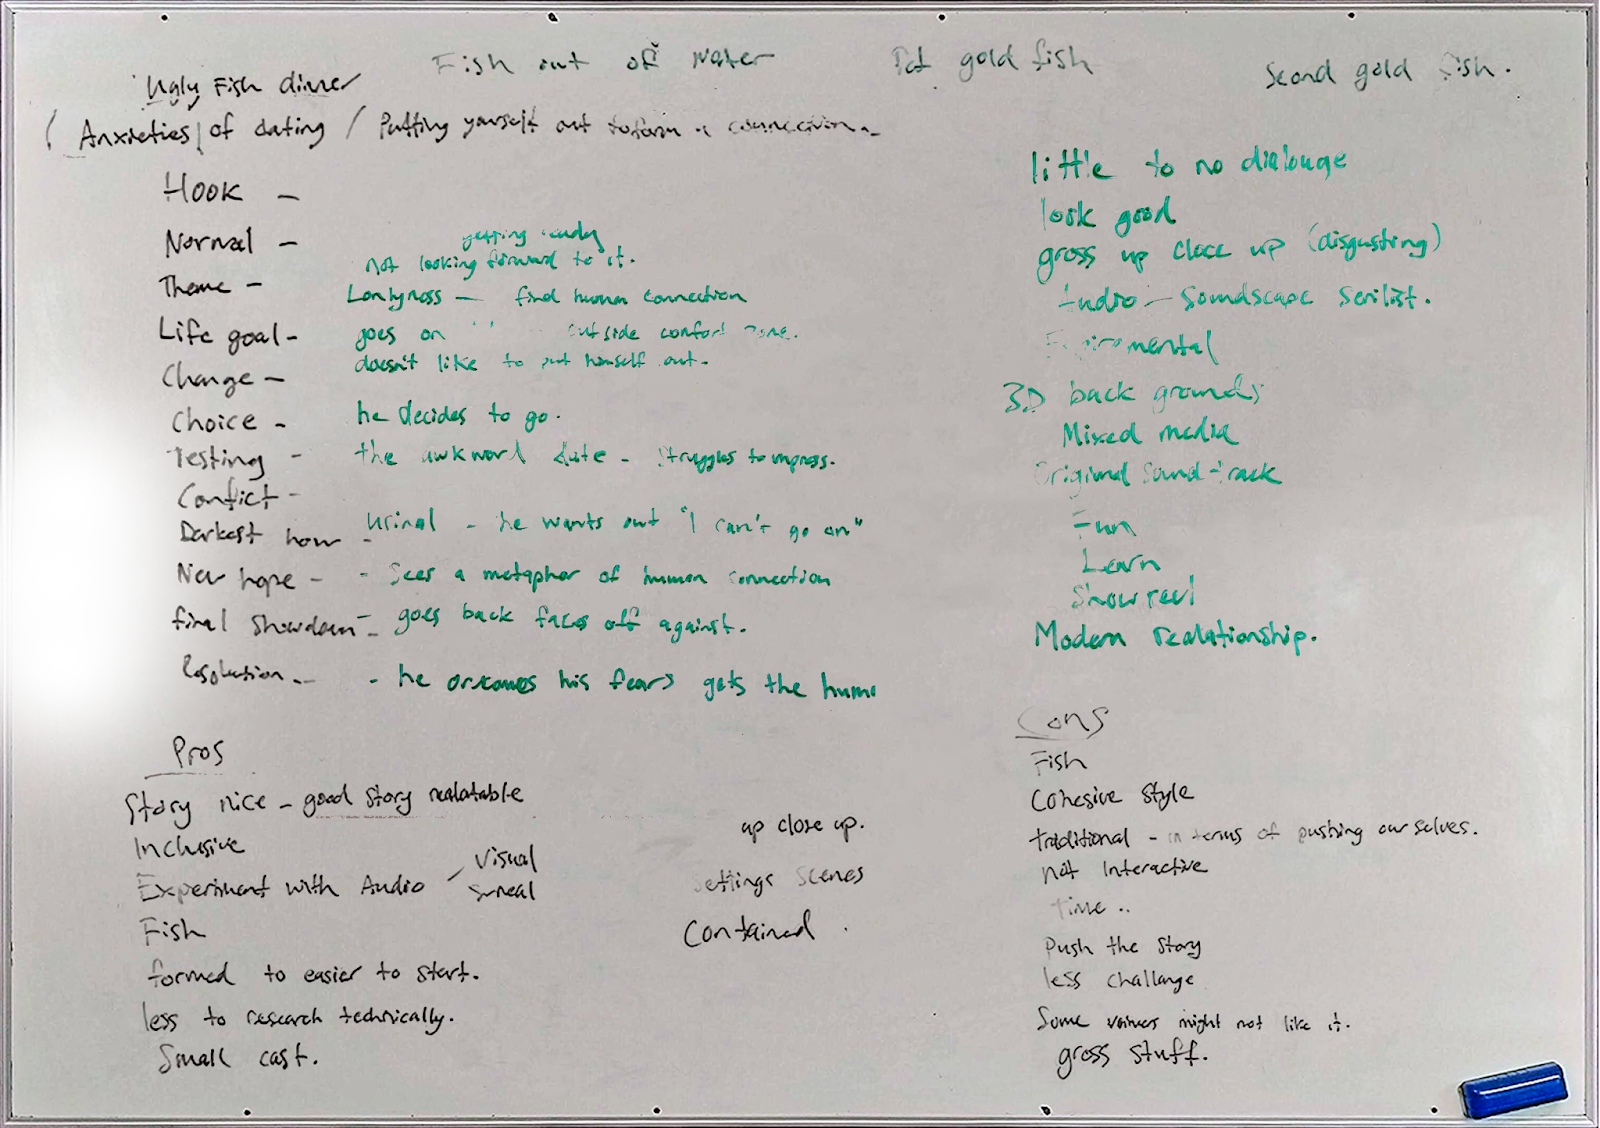 Ugly Fish dinner
Fish out of water
Pet gold fish
Second gold fish.
(Anxieties of dating / Putting yourself out to form a connection.
Hook –
Normal –
getting ready
not looking forward to it.
Theme – Lonlyness – find human connection
Life goal – goes on outside comfort zone.
doesn't like to put himself out.
Change –
Choice – he decides to go.
Testing – the awkword date – struggles to impress.
Conflict –
Darkest hour – Urinal – he wants out "I can't go on"
New hope – - Sees a metaphor of human connection
final showdown – goes back faces off against.
Resolution – - he orcomes his fears gets the human
little to no dialouge
look good
gross up close up (disgusting)
Audio – Soundscape
Enviromental
3D back grounds
Mixed media
Original Sound track
Fun
Learn
Showreel
Modern realationship.
Pros
Story nice – good story realatable
Inclusive
Experiment with Audio
Visual
Surreal
Fish
formed to easier to start.
less to research technically.
Small cast.
up close up.
settings scenes
Contained
Cons
Fish
Cohesive Style
traditional – in terms of pushing our selves.
not Interactive
time ..
Push the story
less challange
Some might not like it.
gross stuff.